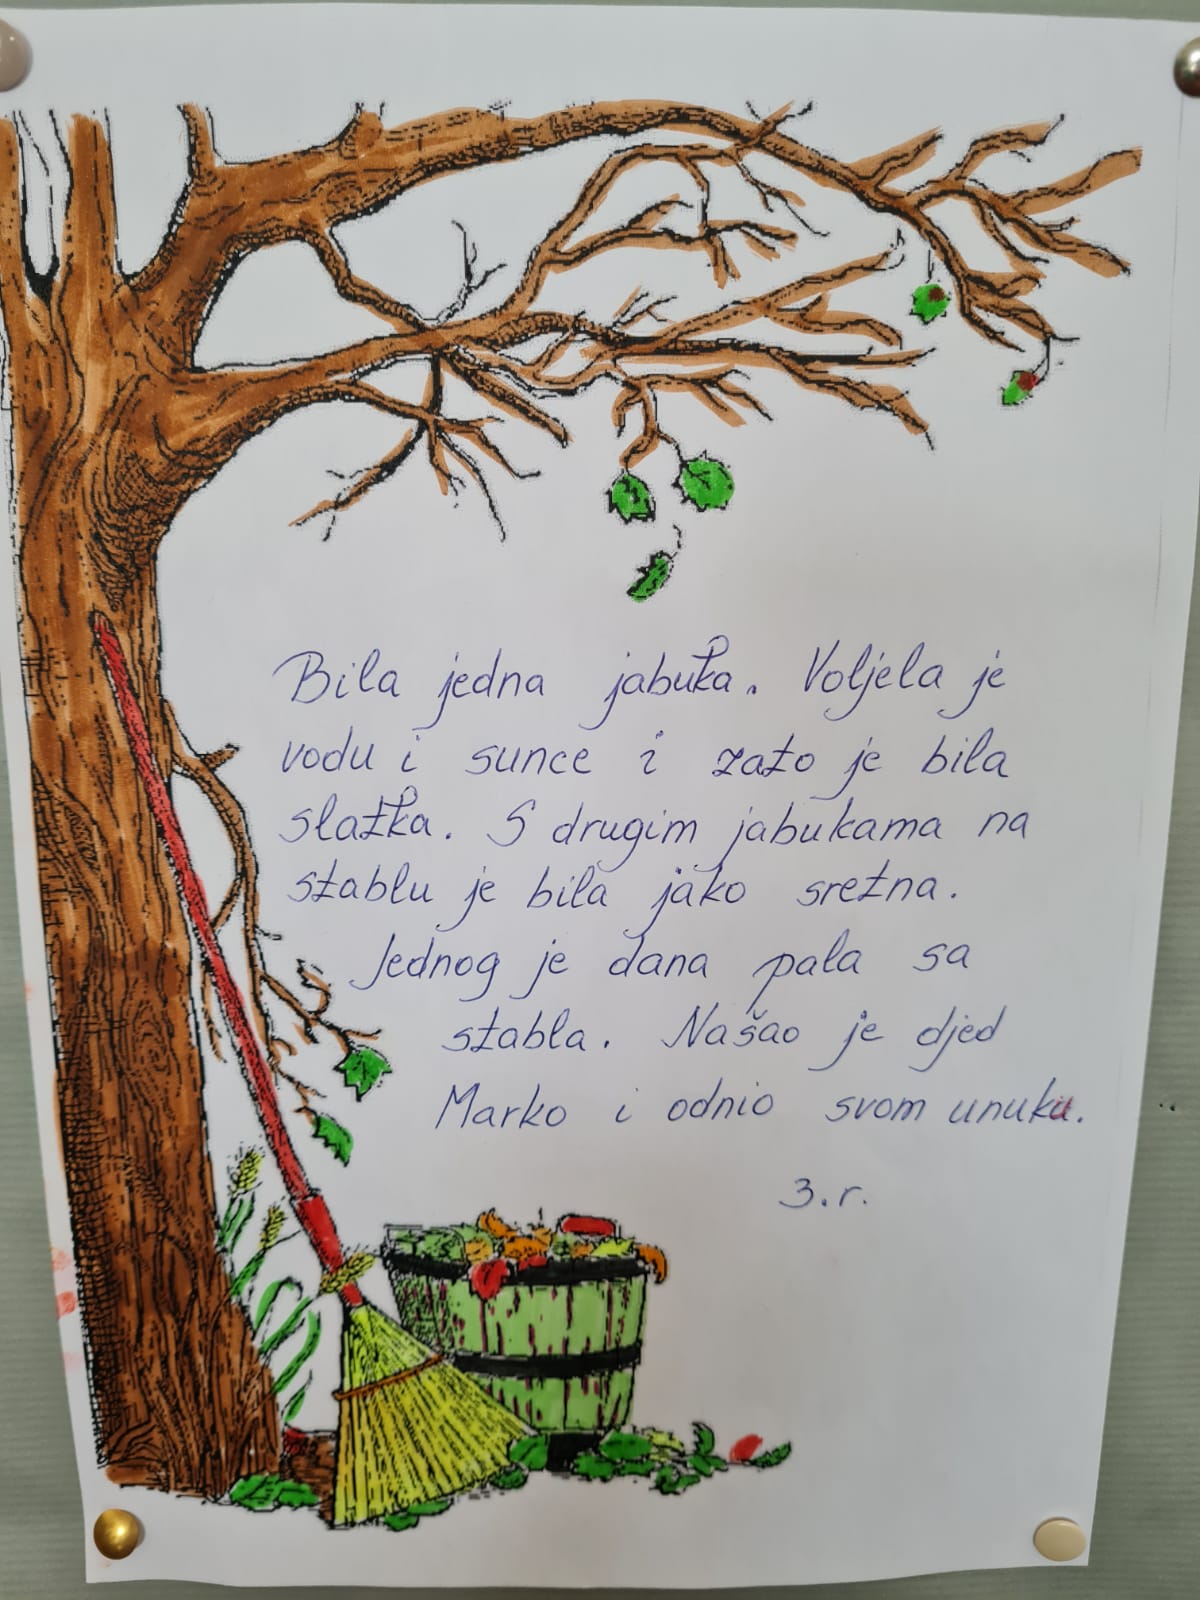 Bila jedna jabuka. Voljela je
vodu i sunce i zato je bila
slatka. S drugim jabukama na
stablu je bila jako sretna.
Jednog je dana pala sa
stabla. Našao je djed
Marko i odnio svom unuku.
3. r.